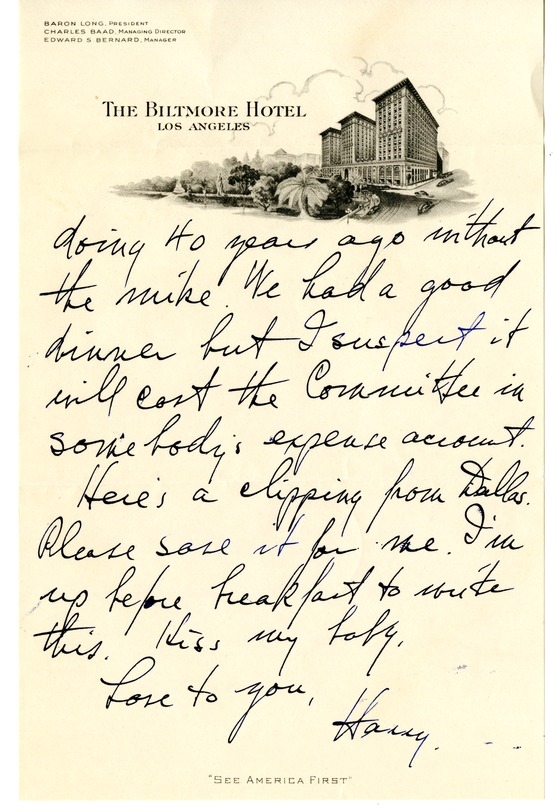 BARON LONG, PRESIDENT
CHARLES BAAD, MANAGING DIRECTOR
EDWARD S BERNARD, MANAGER
THE BILTMORE HOTEL
LOS ANGELES
doing 40 years ago without
the mike. We had a good
dinner but I suspect it
will cost the Committee in
somebody's expense account.
Here's a clipping from Dallas.
Please save it for me. I'm
up before breakfast to write
this. Kiss my baby.
Love to you,
Harry.
"SEE AMERICA FIRST"